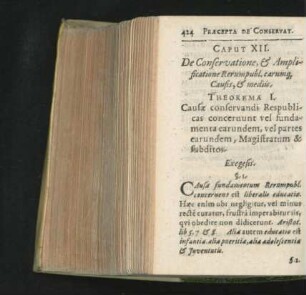 424 PRÆCEPTA DE CONSERVAT.
CAPUT XII.
De Conservatione, & Ampli-
ficatione Rerumpubl. earumq;
Causis, & mediis.
THEOREMA I.
Causæ conservandi Respubli-
cas concernunt vel funda-
menta earundem, vel partes
earundem, Magistratum &
subditos.
Exegesis.
§. 1.
CAusa fundamentorum Rerumpubl.
concernens est liberalis educatio.
Hæc enim ubi negligitur, vel minus
rectè curatur, frustrà imperabitur iis,
qvi obedire non didicerunt. Aristot.
lib. 5. 7 & 8. Alia autem educatio est
infantia, alia pueritia, alia adolescentia
& Juventutis.
§ 2.